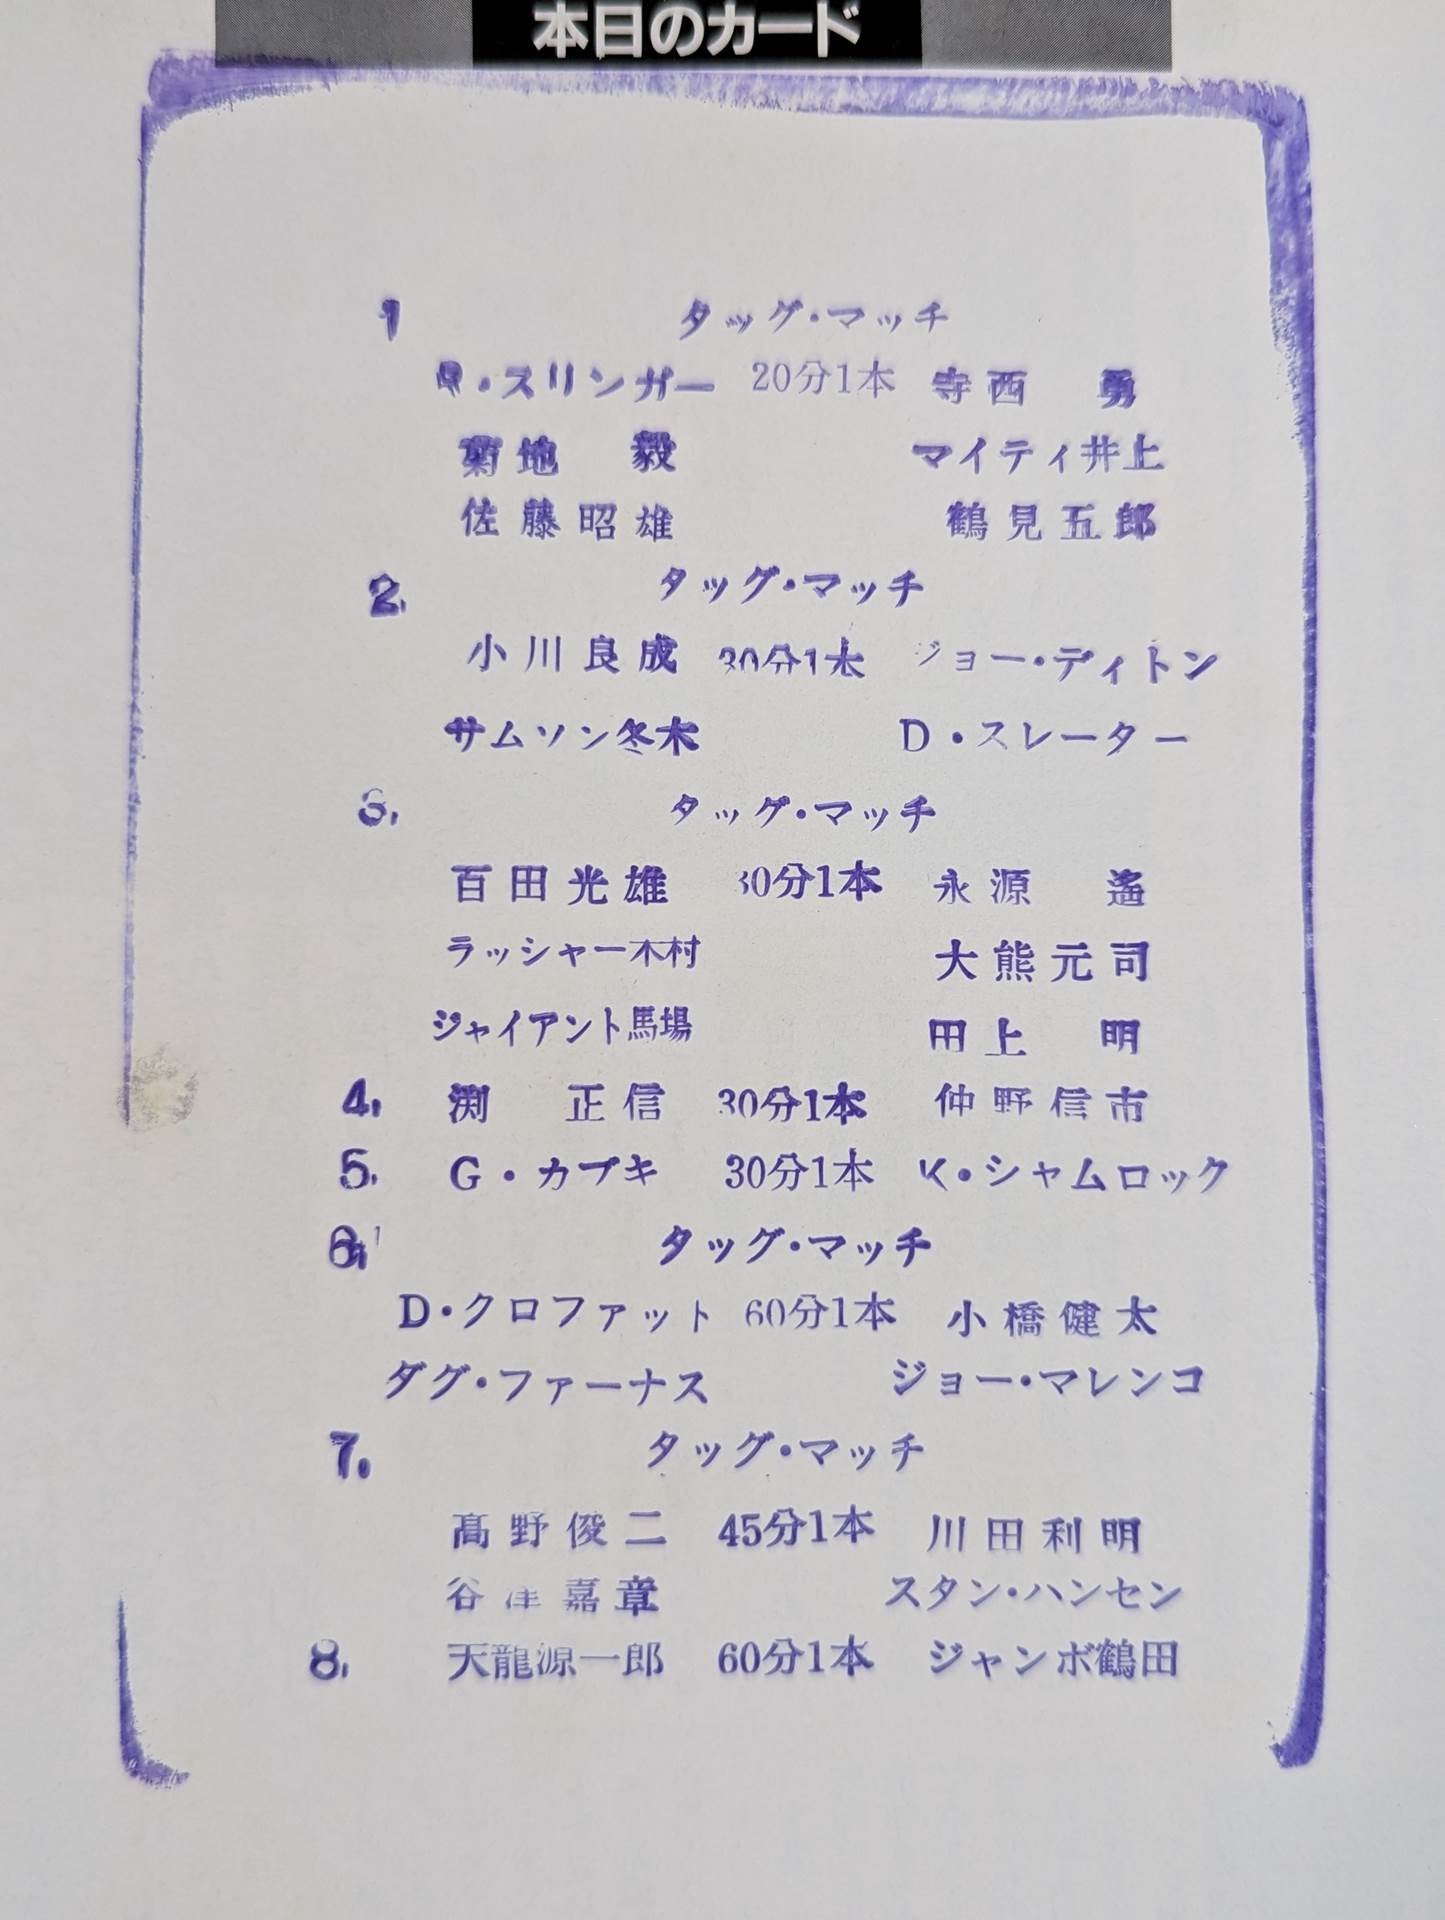 本日のカード
1 タッグ・マッチ
R・スリンガー 20分1本 寺西 勇
菊地 毅 マイティ井上
佐藤昭雄 鶴見五郎
2. タッグ・マッチ
小川良成 30分1本 ジョー・ディトン
サムソン冬木 D・スレーター
3. タッグ・マッチ
百田光雄 30分1本 永源 遙
ラッシャー木村 大熊元司
ジャイアント馬場 田上 明
4. 渕 正信 30分1本 仲野信市
5. G・カブキ 30分1本 K・シャムロック
6. タッグ・マッチ
D・クロファット 60分1本 小橋健太
ダグ・ファーナス ジョー・マレンコ
7. タッグ・マッチ
髙野俊二 45分1本 川田利明
谷津嘉章 スタン・ハンセン
8. 天龍源一郎 60分1本 ジャンボ鶴田